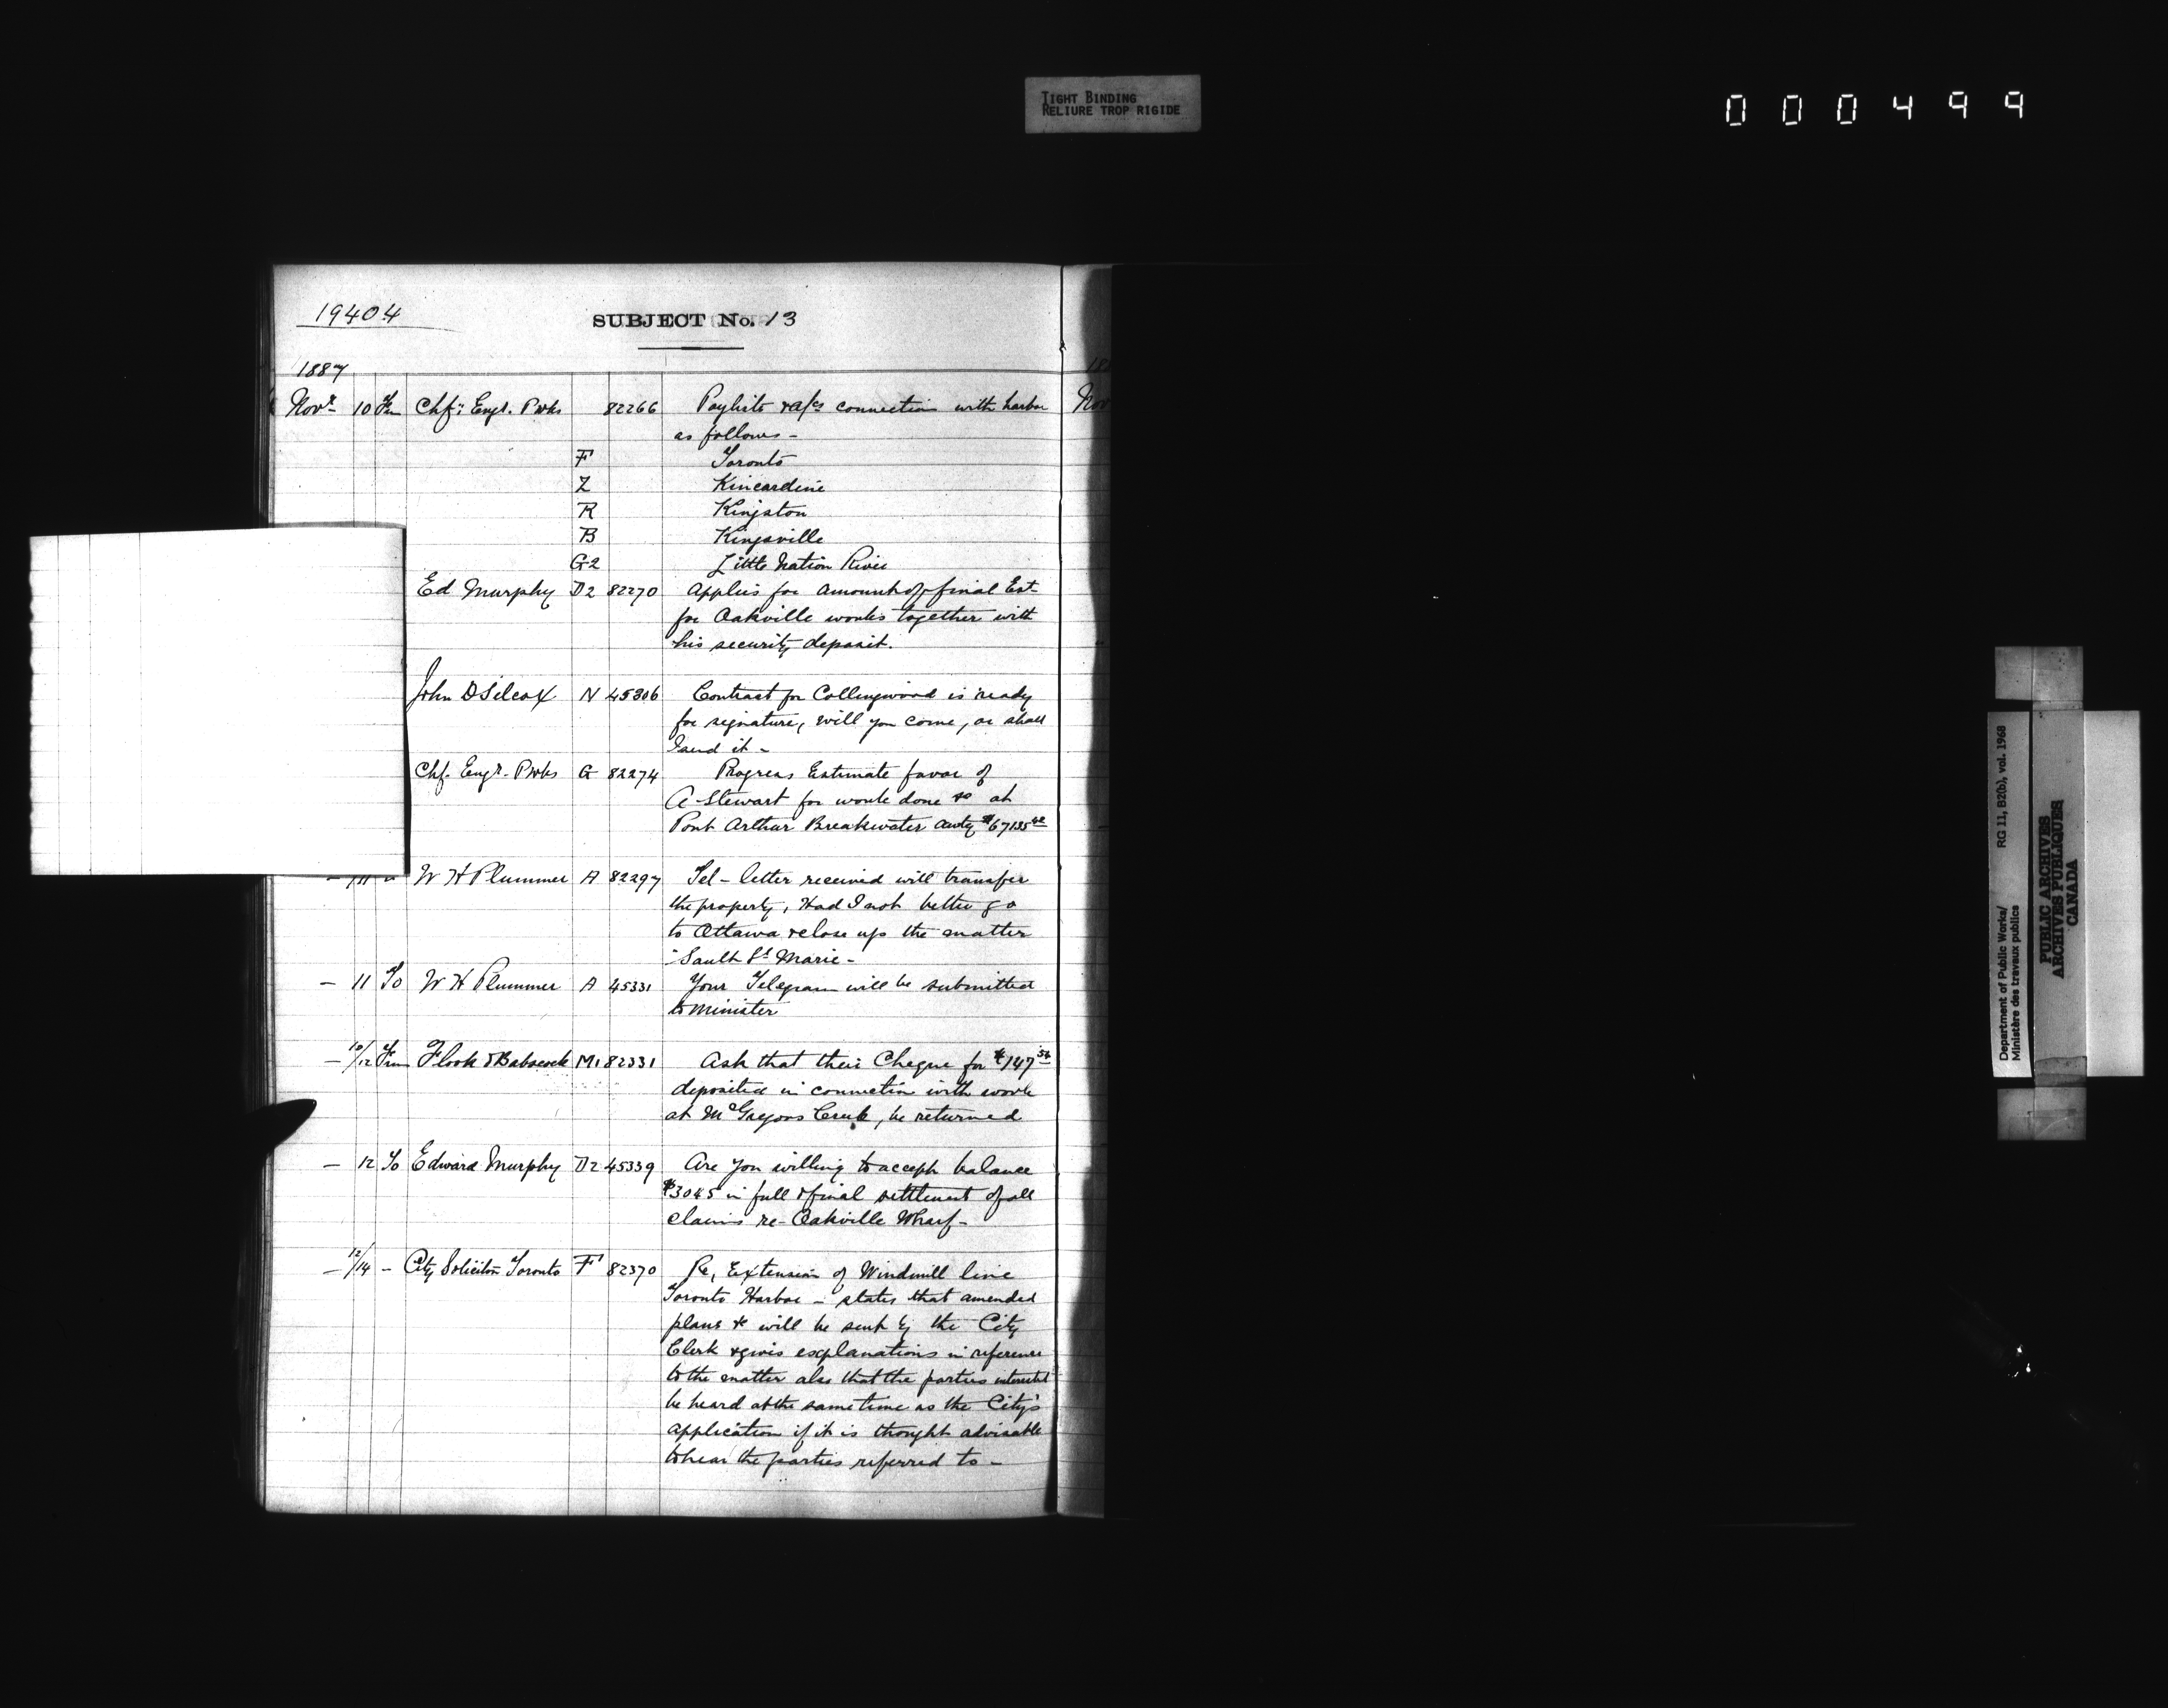 TIGHT BINDING
RELIURE TROP RIGIDE
000499
19404
SUBJECT No. 13
1887
Novr 10 Frm Chf: Engr. P Wks 82266 Paylists & a/cs connection with harbor
as follows -
F Toronto
Z Kincardine
R Kingston
B Kingsville
G2 Little Nation River
Ed Murphy D2 82270 Applies for amount of final Est-
for Oakville works together with
his security deposit.
John D Silcox N 45306 Contract for Collingwood is ready
for signature, will you come, or shall
I send it -
Chf. Engr. P Wks G 82274 Progress Estimate favor of
A Stewart for work done &c at
Port Arthur Breakwater
W H Plummer A 82297 Tel - letter received will transfer
the property, Had I not better go
to Ottawa & close up the matter
Sault St Marie -
- 11 To W H Plummer A 45331 Your Telegram will be submitted
to Minister
- 10/12 Frm Flook & Babcock M1 82331 Ask that their Cheque for $147
deposited in connection with work
at McGregors Creek, be returned
- 12 To Edward Murphy D2 45339 Are you willing to accept balance
$3045 in full & final settlement of all
claims re- Oakville Wharf -
- 12/14 - City Solicitor Toronto F 82370 Re, Extension of Windmill line
Toronto Harbor - states that amended
plans &c will be sent by the City
Clerk & gives explanations in reference
to the matter also that the parties interested
be heard at the same time as the City's
application if it is thought advisable
to hear the parties referred to -
Department of Public Works/ RG 11, B2(b), vol. 1968
Ministère des travaux publics
PUBLIC ARCHIVES
ARCHIVES PUBLIQUES
CANADA